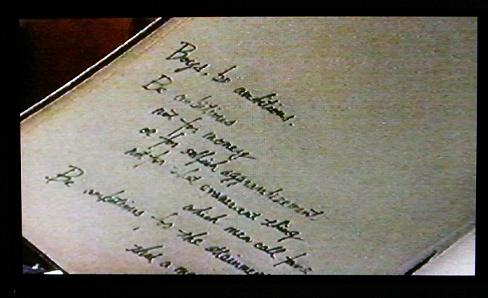 Boys, be ambitious.
Be ambitious
not for money
or for selfish aggrandizement
not for that evanescent thing
which men call fame
Be ambitious for the attainment
that a ma